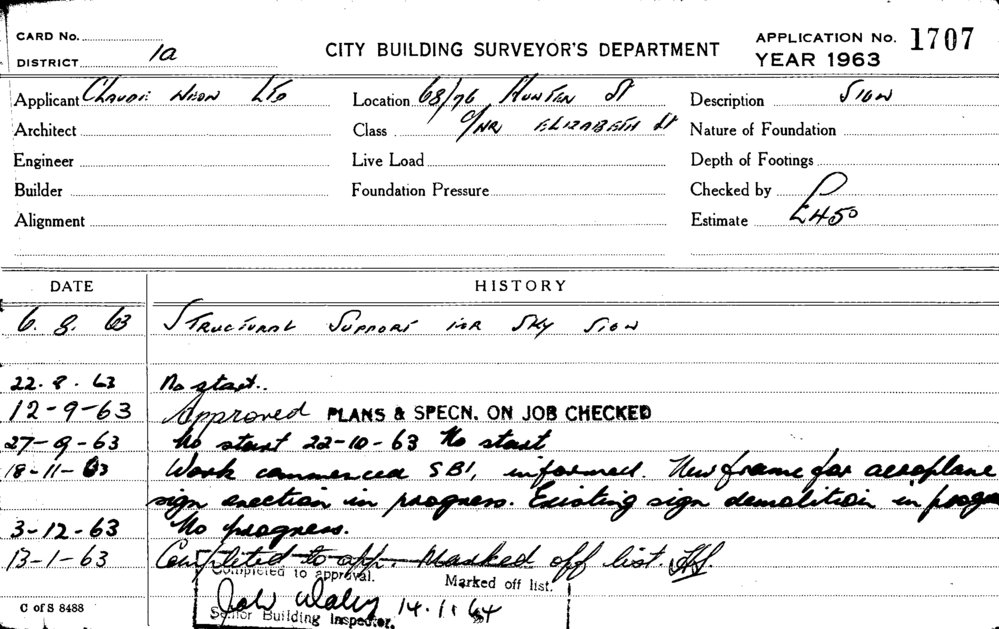 CARD No.
DISTRICT 1a
CITY BUILDING SURVEYOR'S DEPARTMENT
APPLICATION No. 1707
YEAR 1963
Applicant Claude Neon Ltd
Location 68/76 Hunter St
Description Sign
Architect
Class C/NR ELIZABETH St
Nature of Foundation
Engineer
Live Load
Depth of Footings
Builder
Foundation Pressure
Checked by
Alignment
Estimate £450
DATE
HISTORY
6. 8. 63 Structural Support for Sky Sign
22. 8. 63 No start..
12-9-63 Approved PLANS & SPECN. ON JOB CHECKED
27-9-63 No start 22-10-63 No start
18-11-63 Work commenced SBI, informed. New frame for aeroplane
sign erection in progress. Existing sign demolition in progr
3-12-63 No progress.
13-1-63 Completed to app. Marked off list.
Completed to approval. Marked off list.
14.1.64
Senior Building Inspector.
C of S 8488